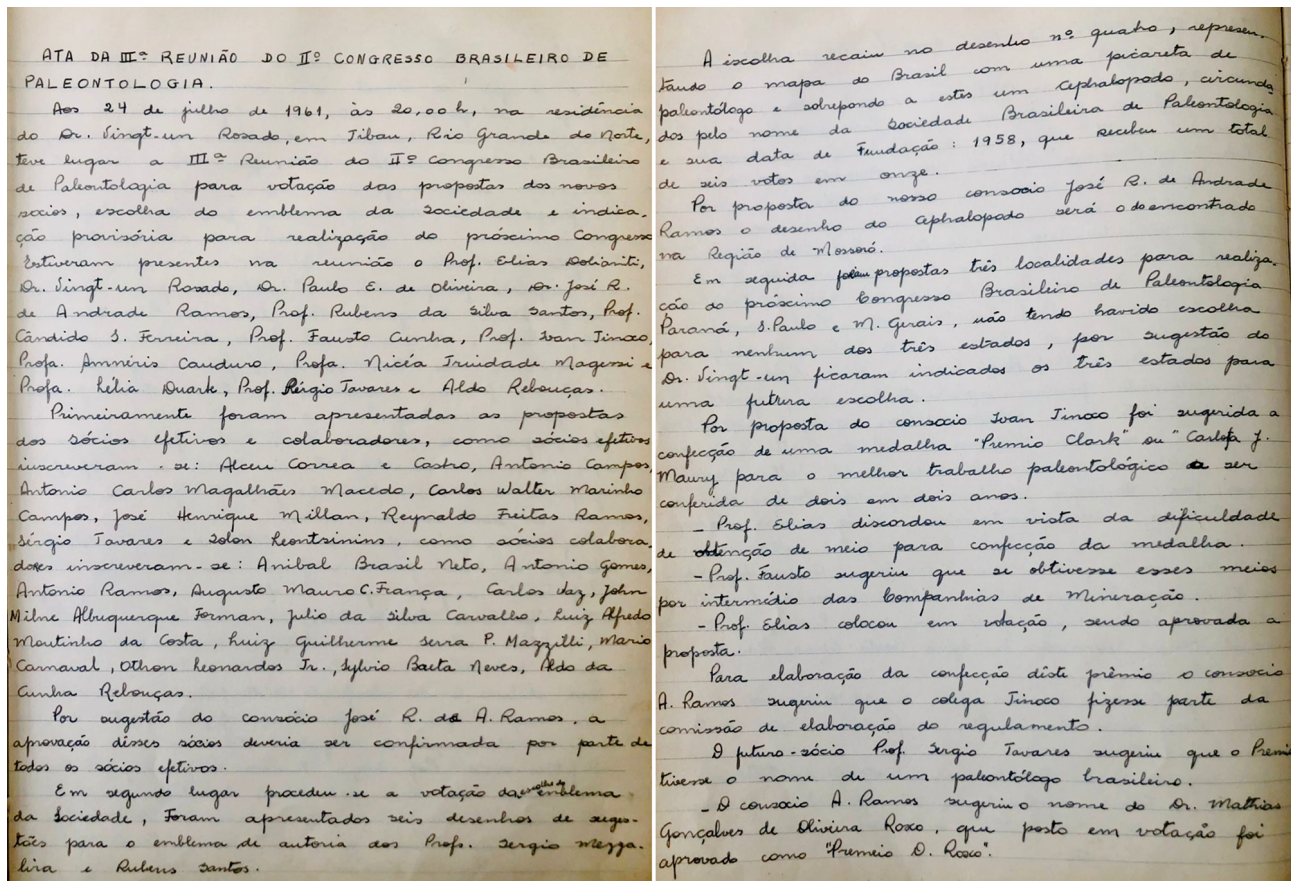 ATA DA IIIª REUNIÃO DO IIº CONGRESSO BRASILEIRO DE
PALEONTOLOGIA.
Aos 24 de julho de 1961, às 20,00h, na residência
do Dr. Vingt-un Rosado, em Tibau, Rio Grande do Norte,
teve lugar a IIIª Reunião do IIº Congresso Brasileiro
de Paleontologia para votação das propostas dos novos
socios, escolha do emblema da Sociedade e indica-
ção provisória para realização do próscimo Congresso
Estiveram presentes na reunião o Prof. Elias Dolianiti,
Dr. Vingt-un Rosado, Dr. Paulo E. de Oliveira, Dr. José R.
de Andrade Ramos, Prof. Rubens da Silva Santos, Prof.
Cândido S. Ferreira, Prof. Fausto Cunha, Prof. Ivan Tinoco,
Profa. Amnéris Cauduro, Profa. Nicéa Trindade Magessi e
Profa. Lélia Duark, Prof. Sérgio Tavares e Aldo Rebouças.
Primeiramente foram apresentadas as propostas
dos sócios efetivos e colaboradores, como sócios efetivos
inscreveram-se: Alceu Correa e Castro, Antonio Campos,
Antonio Carlos Magalhães Macedo, Carlos Walter Marinho
Campos, José Henrique Millan, Reynaldo Freitas Ramos,
Sérgio Tavares e Solon Leontsinins, como sócios colabora-
dores inscreveram-se: Anibal Brasil Neto, Antonio Gomes,
Antonio Ramos, Augusto Mauro C. França, Carlos Vaz, John
Milne Albuquerque Forman, Julio da Silva Carvalho, Luiz Alfredo
Moutinho da Costa, Luiz Guilherme Serra P. Mazzilli, Mario
Carnaval, Othon Leonardos Jr., Sylvio Baeta Neves, Aldo da
Cunha Rebouças.
Por sugestão do consócio José R. de A. Ramos, a
aprovação dêsses sócios deveria ser confirmada por parte de
todos os sócios efetivos.
Em segundo lugar procedeu-se a votação da escolha do emblema
da Sociedade, Foram apresentados seis desenhos de suges-
tões para o emblema de autoria dos Profs. Sergio Mezza-
lira e Rubens Santos.
A escolha recaiu no desenho nº quatro, represen-
tando o mapa do Brasil com uma picareta de
paleontólogo e sobrepondo a estes um Cephalopodo, circunda
dos pelo nome da Sociedade Brasileira de Paleontologia
e sua data de Fundação: 1958, que recebeu um total
de seis votos em onze.
Por proposta do nosso consocio José R. de Andrade
Ramos o desenho do Cephalopodo será o do encontrado
na Região de Mossoró.
Em seguida foram propostas três localidades para realiza-
ção do próscimo Congresso Brasileiro de Paleontologia
Paraná, S. Paulo e M. Gerais, não tendo havido escolha
para nenhum dos três estados, por sugestão do
Dr. Vingt-un ficaram indicados os três estados para
uma futura escolha.
Por proposta do consocio Ivan Tinoco foi sugerida a
confecção de uma medalha "Premio Clark" ou "Carlota J.
Maury para o melhor trabalho paleontológico a ser
conferida de dois em dois anos.
- Prof. Elias discordou em vista da dificuldade
de obtenção de meio para confecção da medalha.
- Prof. Fausto sugeriu que se obtivesse esses meios
por intermédio das Companhias de Mineração.
- Prof. Elias colocou em votação, sendo aprovada a
proposta.
Para elaboração da confecção dêste prêmio o consocio
A. Ramos sugeriu que o colega Tinoco fizesse parte da
comissão de elaboração do regulamento.
O futuro-sócio Prof. Sergio Tavares sugeriu que o Premi
tivesse o nome de um paleontólogo brasileiro.
- O consocio A. Ramos sugeriu o nome do Dr. Mathias
Gonçalves de Oliveira Roxo, que posto em votação foi
aprovado como "Premeio O. Roxo".